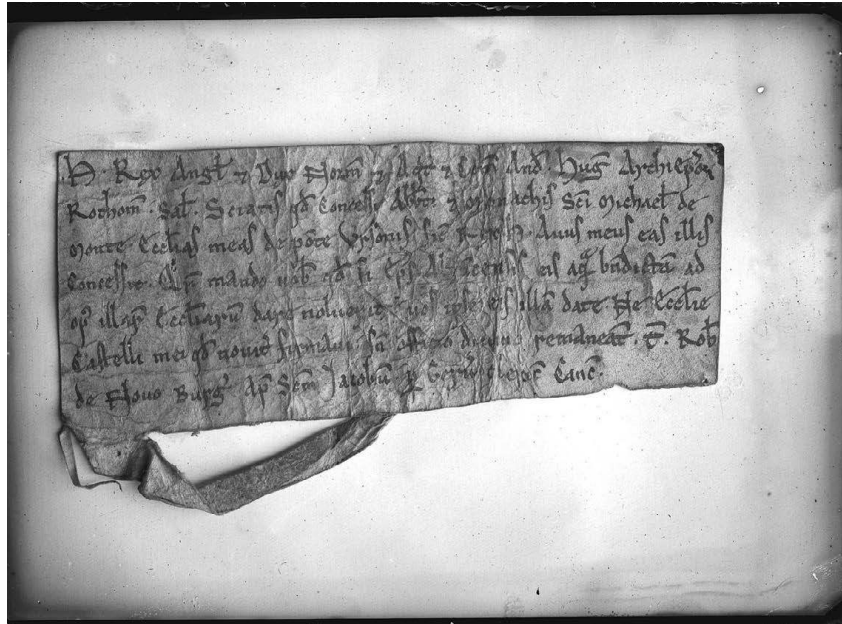 H. Rex Angl̃ ⁊ Dux Norm̃ ⁊ Aqt̃ ⁊ Com̃ And̃. Hug̃ Archiep̃o
Rothom̃. Sal̃. Sciatis qd̃ Concessi Abb̃ti ⁊ monachis Sc̃i Michael̃ de
monte Eccl̃ias meas de põte Ursonis sic̃ Rex .H. Auus meus eas illis
Concessit. mando uob̃ qd̃ si ep̃s eis aq̃ bñdictã ad
op̃ illaȝ Eccl̃iarũ dare noluerit uos ipse eis illã date Ne Eccl̃ie
Castelli mei qd̃ nouit̃ firmaui sñ officio diuino remaneãt. T̃. Rob̃
de Nouo Burg̃ Ap̃ Sc̃m Jacobũ Canc̃.